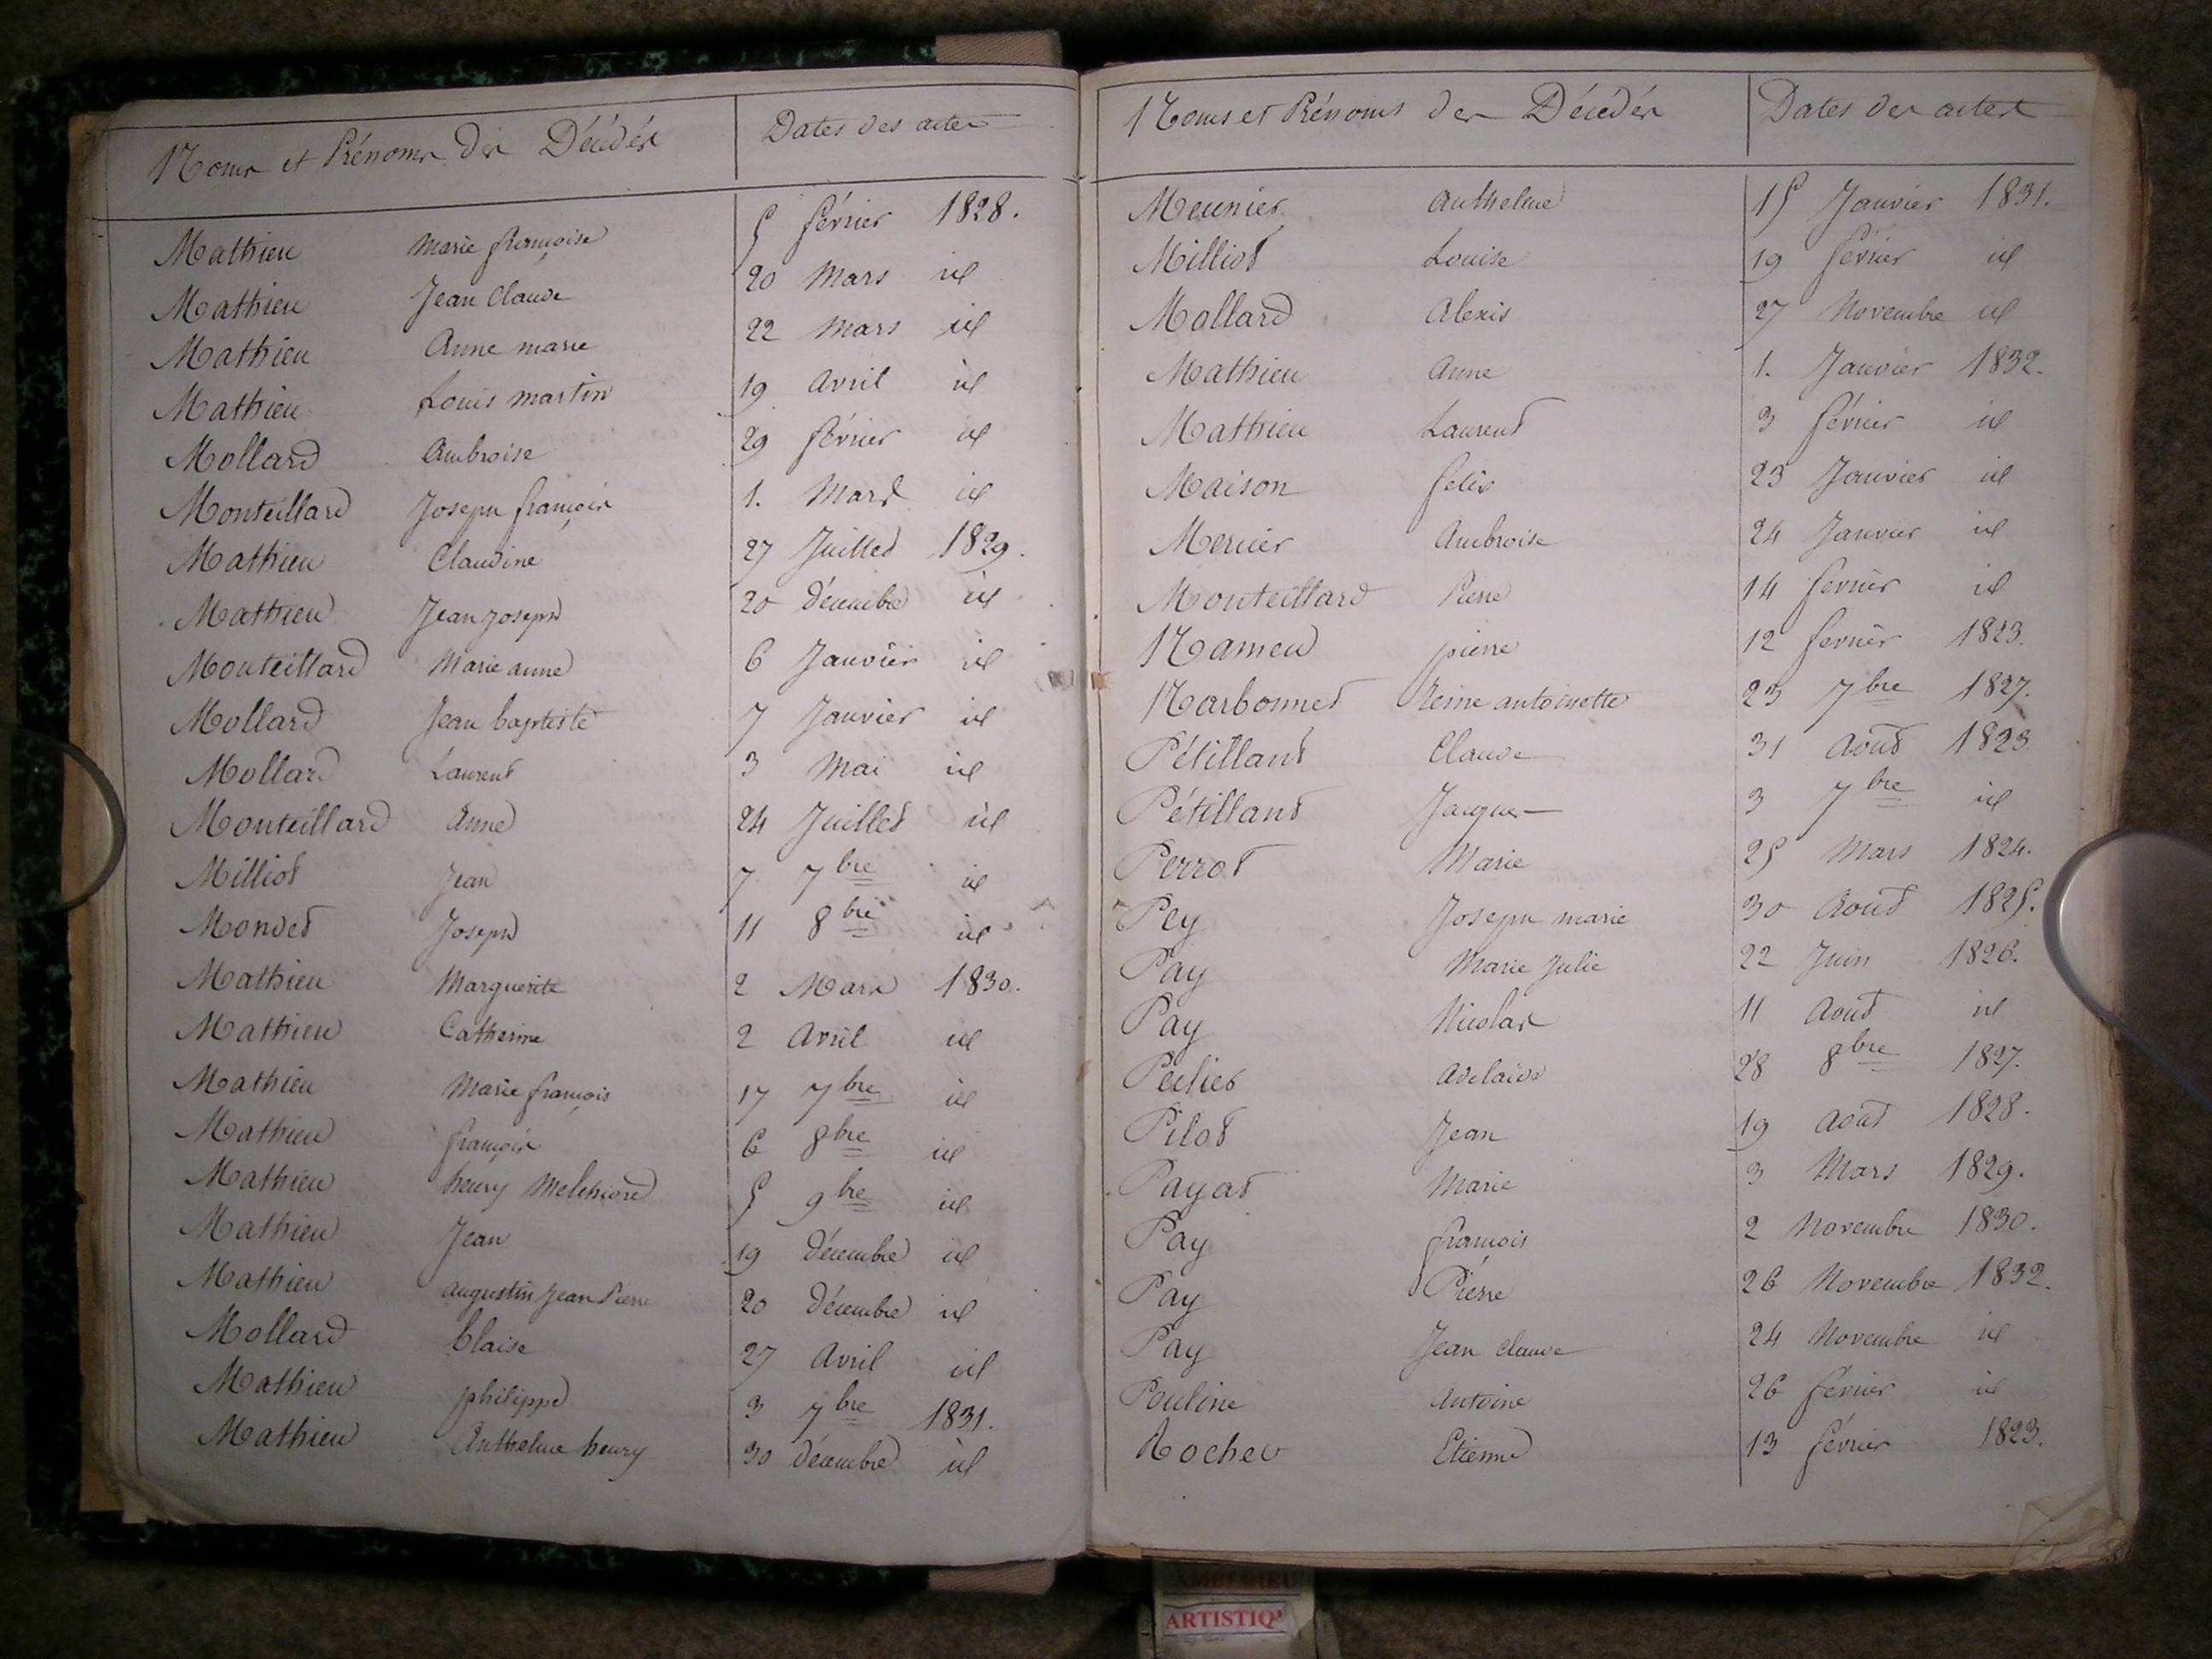 Noms et Prénoms des Décédés Dates des actes
Mathieu Marie françoise 5 février 1828.
Mathieu Jean Claude 20 Mars id
Mathieu Anne marie 22 Mars id
Mathieu Louis martin 19 Avril id
Mollard Ambroise 29 février id
Monteillard Joseph françois 1. Mars id
Mathieu Claudine 27 Juillet 1829.
Mathieu Jean Joseph 20 Décembre id
Monteillard Marie anne 6 Janvier id
Mollard Jean baptiste 7 Janvier id
Mollard Laurent 3 Mai id
Monteillard Anne 24 Juillet id
Milliot Jean 7 7bre id
Mondet Joseph 11 8bre id
Mathieu Marguerite 2 Mars 1830.
Mathieu Catherine 2 Avril id
Mathieu Marie françois 17 7bre id
Mathieu françois 6 8bre id
Mathieu henry Melchiord 5 9bre id
Mathieu Jean 19 Décembre id
Mathieu augustin Jean Pierre 20 Décembre id
Mollard blaise 27 Avril id
Mathieu philippe 3 7bre 1831.
Mathieu Anthelme henry 30 Décembre id
Noms et Prénoms des Décédés Dates des actes
Meunier Anthelme 15 Janvier 1831.
Milliot Louise 19 février id
Mollard Alexis 27 Novembre id
Mathieu Anne 1. Janvier 1832.
Mathieu Laurent 3 février id
Maison felix 23 Janvier id
Mercier Ambroise 24 Janvier id
Monteillard Pierre 14 fevrier id
Nameu pierre 12 fevrier 1823.
Narbonnet Reine antoinette 23 7bre 1827.
Pétillant Claude 31 Août 1823.
Pétillant Jacques 3 7bre id
Perrot Marie 25 Mars 1824.
Pey Joseph marie 30 Aout 1825.
Pay Marie Julie 22 Juin 1826.
Pay Nicolas 11 Aout id
Adelaide 28 8bre 1827.
Pilot Jean 19 Aout 1828.
Payat Marie 3 Mars 1829.
Pay françois 2 Novembre 1830.
Pay Pierre 26 Novembre 1832.
Pay Jean claude 24 Novembre id
Pouline Antoine 26 fevrier id
Rochet Etienne 13 février 1823.
ARTISTIQ'